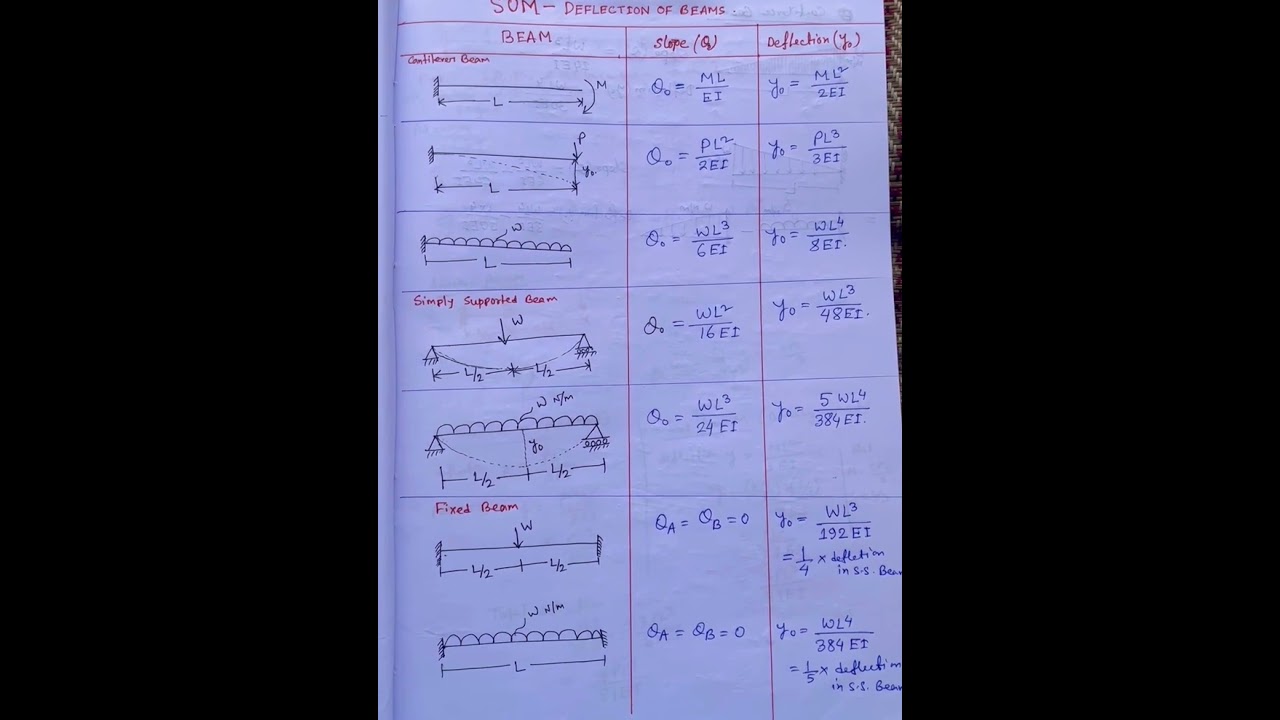 SOM - DEFLECTION OF BEAMS.
BEAM Slope (Q) Deflection (y₀)
Cantilever Beam
M
L
Q₀ = ML/EI y₀ = ML²/2EI
P
y₀.
L
Q₀ = PL²/2EI y₀ = PL³/3EI
W
L
Q₀ = WL³/6EI y₀ = WL⁴/8EI.
Simply supported Beam
W
L/2 L/2
Q₀ = WL²/16EI y₀ = WL³/48EI.
W N/m
y₀
L/2 L/2
Q₀ = WL³/24EI y₀ = 5WL⁴/384EI.
Fixed Beam
W
L/2 L/2
Q_A = Q_B = 0 y₀ = WL³/192EI
= 1/4 × defletion
in S.S. Beam
W N/m
L
Q_A = Q_B = 0 y₀ = WL⁴/384EI
= 1/5 × deflection
in S.S. Beam